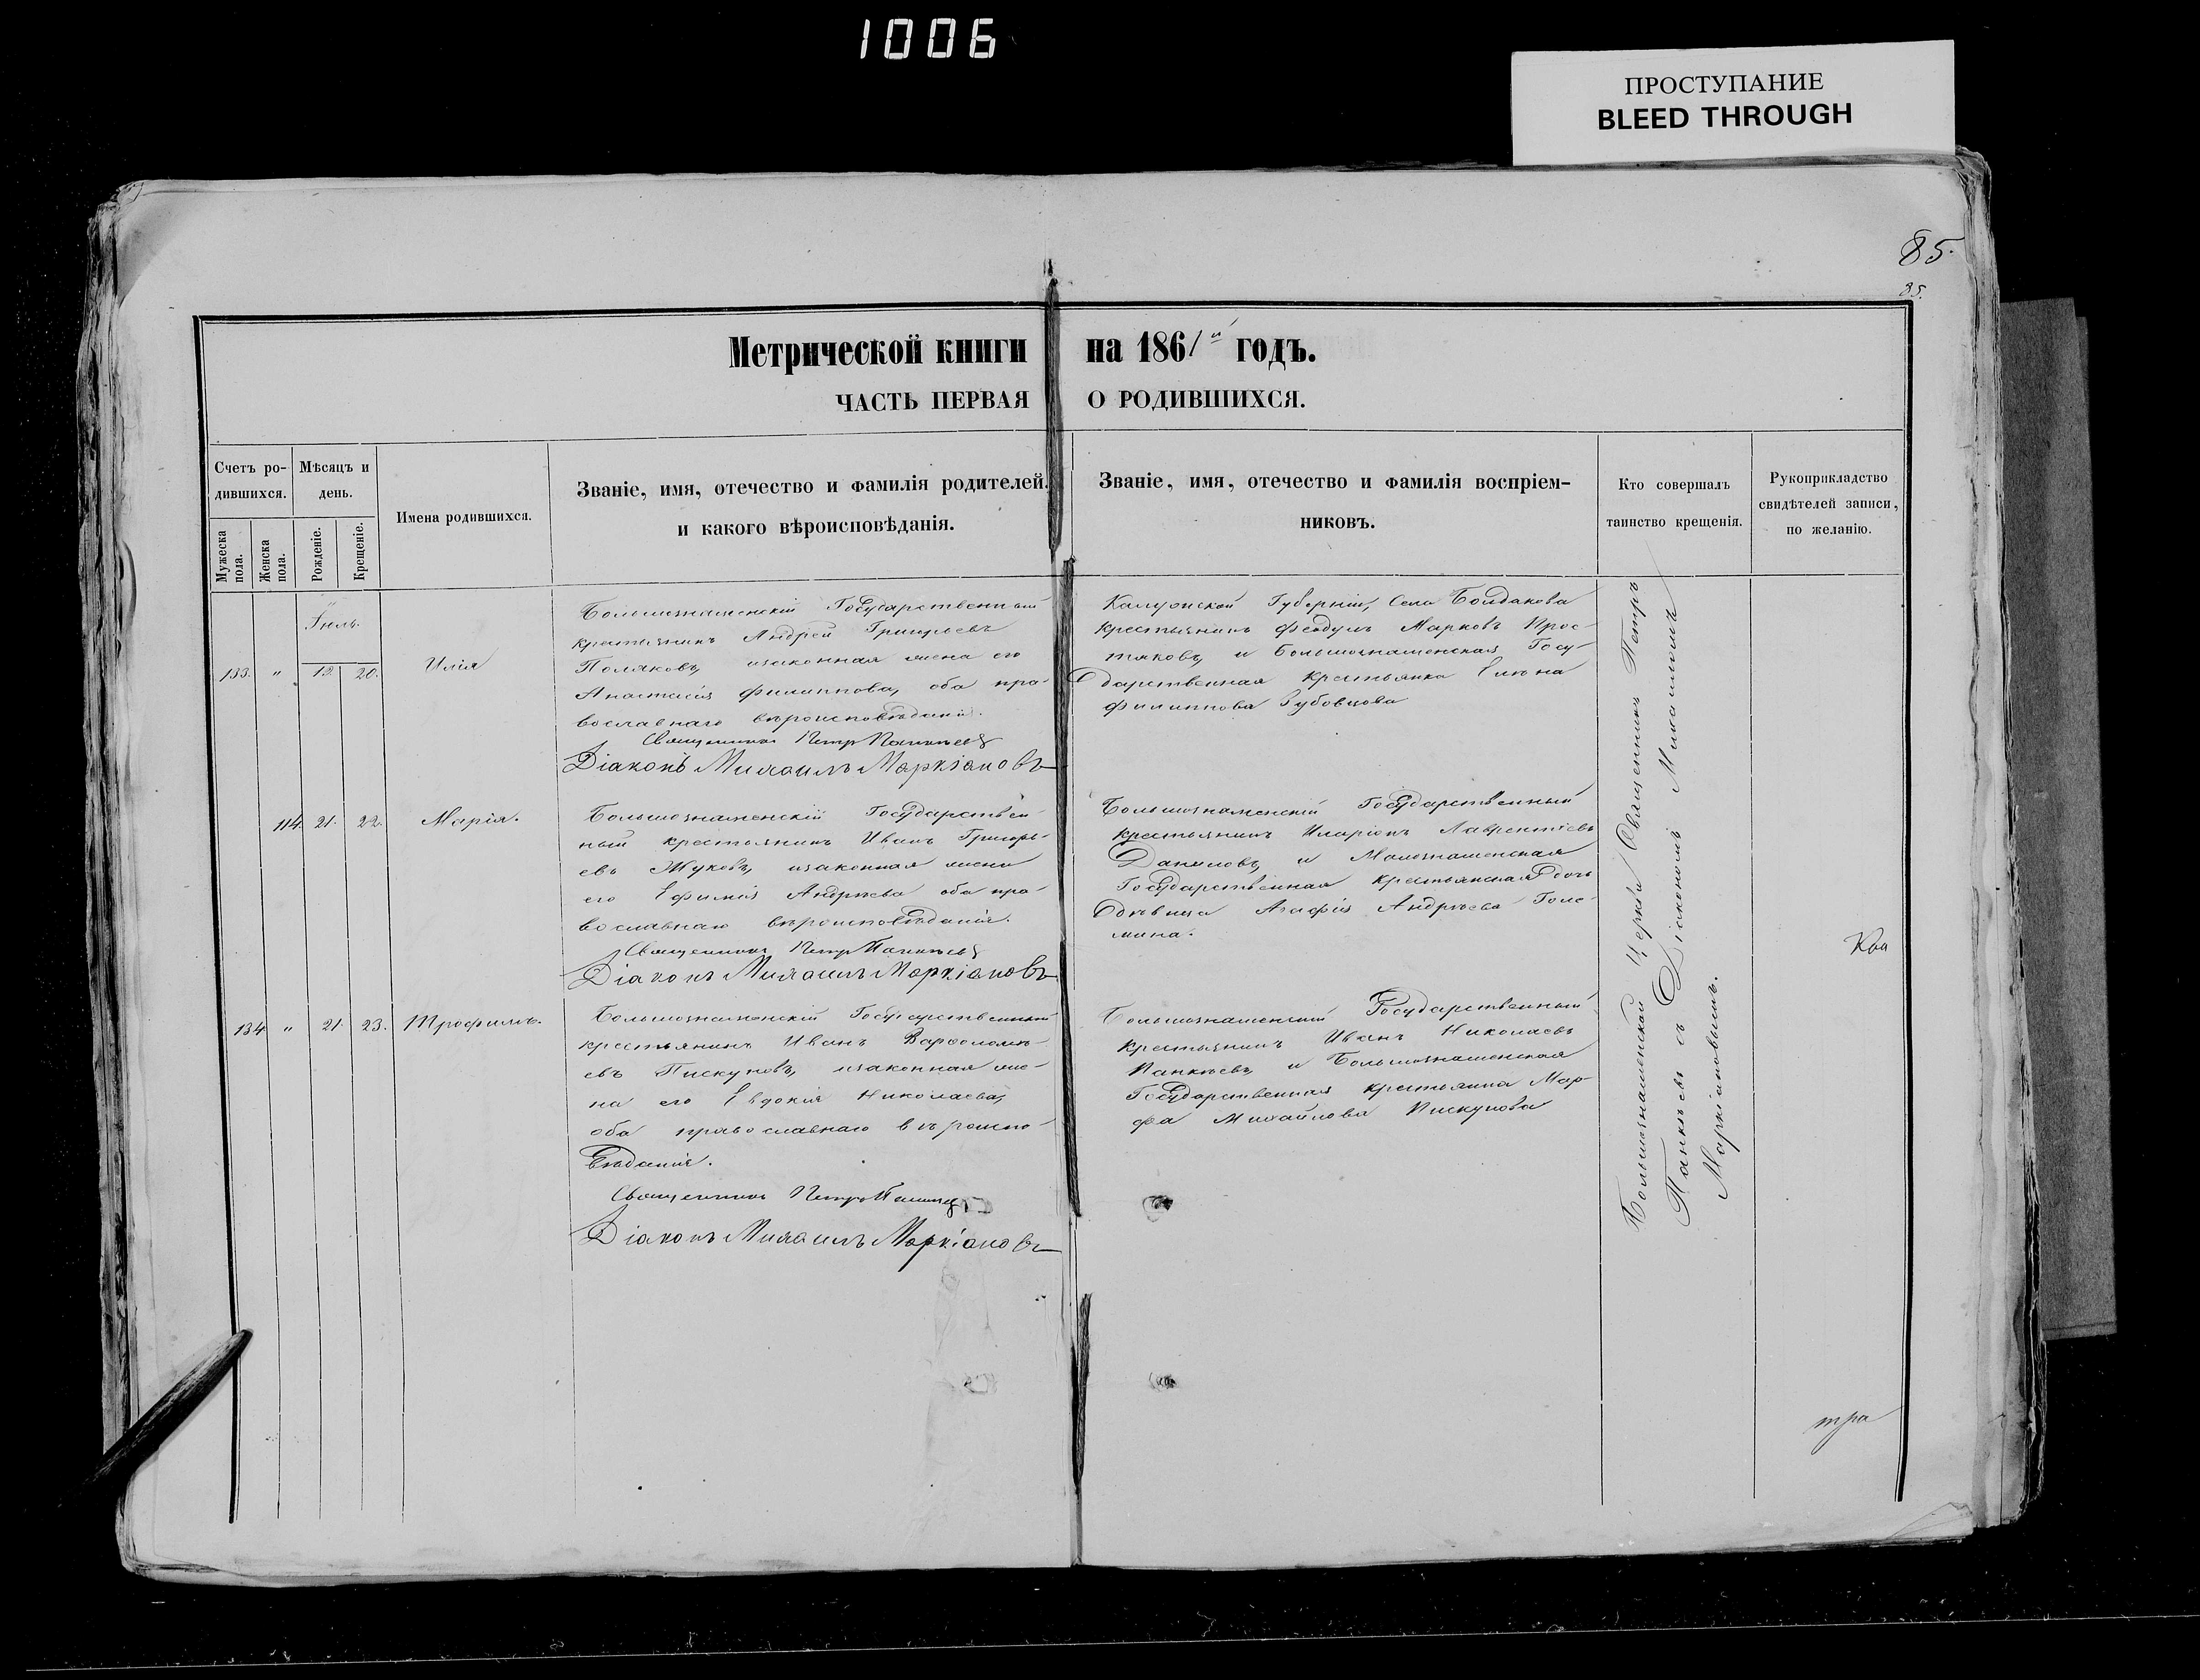 1006
ПРОСТУПАНИЕ
BLEED THROUGH
85.
85.
Метрической книги на 1861й годъ.
ЧАСТЬ ПЕРВАЯ О РОДИВШИХСЯ.
Счетъ ро-
дившихся.
Мужеска пола.
Женска пола.
Мѣсяцъ и
день.
Рожденіе.
Крещеніе.
Имена родившихся.
Званіе, имя, отечество и фамилія родителей,
и какого вѣроисповѣданія.
Званіе, имя, отечество и фамилія воспріем-
никовъ.
Кто совершалъ
таинство крещенія.
Рукоприкладство
свидѣтелей записи,
по желанію.
Іюль.
133. " 20. Илія
Большознаменскій Государственный
крестьянинъ Андрей Григорьевъ
Поляковъ, изаконная жена его
Анастасія Филиппова, оба пра-
вославнаго вѣроисповѣданія.
Священникъ Петръ Панкѣевъ
Діаконъ Михаилъ Маркіановъ
Губерніи, Села Болдакова
крестьянинъ Феодулъ Марковъ Прос-
тяковъ, и Большознаменская Госу-
дарственная крестьянка Елена
Филиппова Зубовцова
114. 21. 22. Марія.
Большознаменскій Государствен-
ный крестьянинъ Иванъ Григорь-
евъ Жуковъ, изаконная жена
его Ефимія Андрѣева оба пра-
вославнаго вѣроисповѣданія.
Священникъ Петръ Панкѣевъ
Діаконъ Михаилъ Маркіановъ
Большознаменскій Государственный
крестьянинъ Иларіонъ Лаврентіевъ
Даниловъ, и Малознаменская
Государственная крестьянская дочь
дѣвица Агафія Андрѣева Голо-
мина.
134 " 21. 23. Трофимъ.
Большознаменскій Государственный
крестьянинъ Иванъ Варѳоломѣ-
евъ Пискуновъ, изаконная же-
на его Евдокія Николаева,
оба православнаго вѣроиспо-
вѣданія.
Священникъ Петръ Панкѣевъ
Діаконъ Михаилъ Маркіановъ
Большознаменскій Государственный
крестьянинъ Иванъ Николаевъ
Панкѣевъ, и Большознаменская
Государственная крестьянка Мар-
фа Михайлова Пискунова
Большознаменской Церкви Священникъ Петръ
Панкѣевъ съ Діакономъ Михаиломъ
Маркіановымъ.
тра